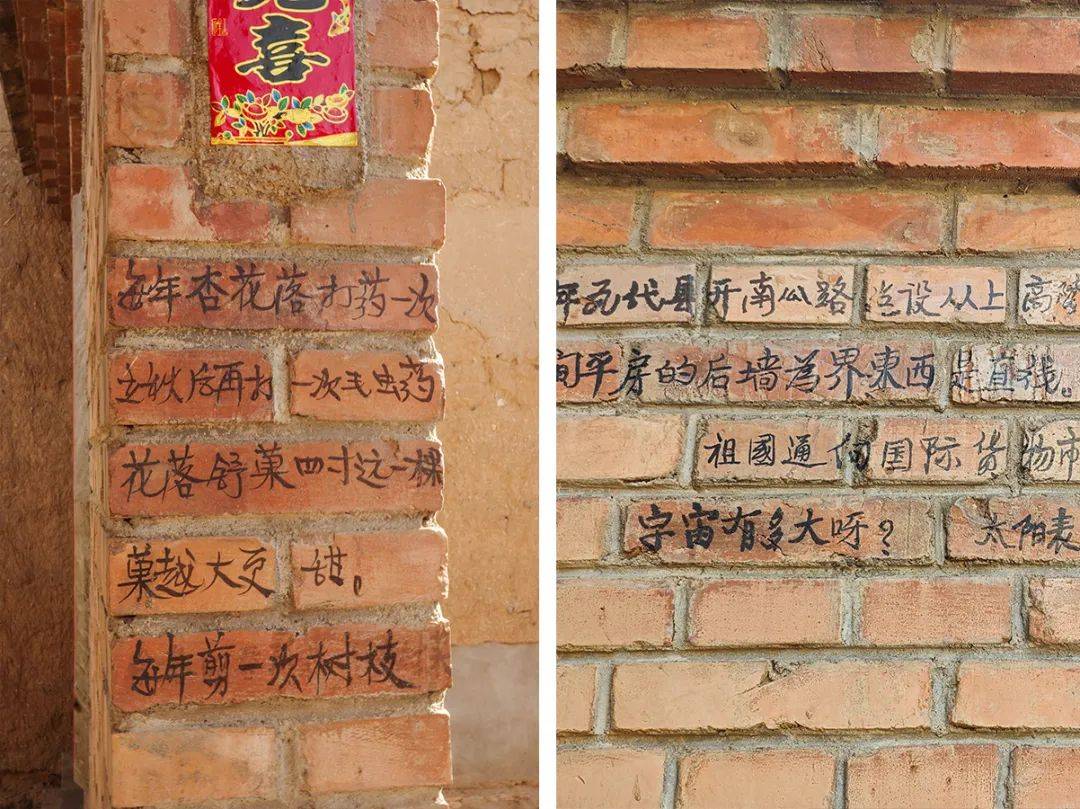 喜
每年杏花落打药一次
立秋后再打一次毛虫药
花落舒菓四寸这一棵
菓越大更甜。
每年剪一次树枝
年瓦代县开南公路 设从上高
间平房的后墙為界東西是直线。
祖國通向国际货物市
宇宙有多大呀? 太阳表